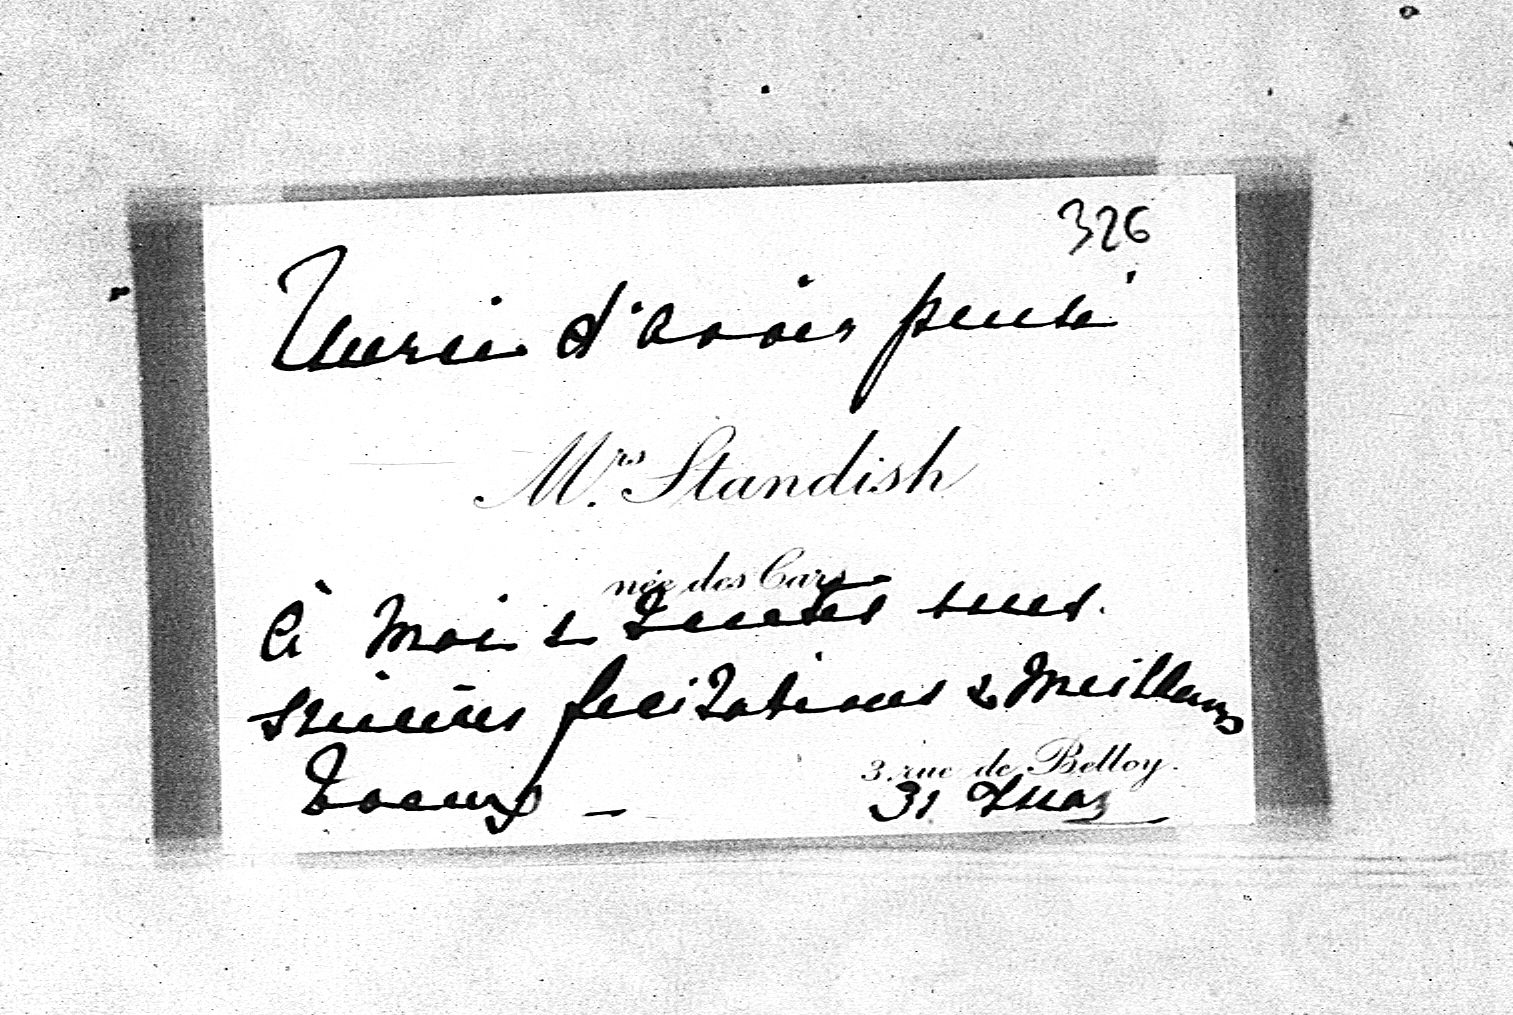 326
Merci d'avoir pensé
Mrs. Standish
née des Cars
à moi & toutes mes
sincères félicitations & meilleurs
voeux –
3. rue de Belloy.
31 Mars